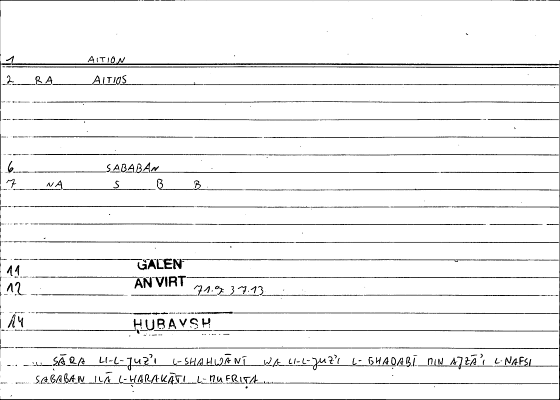 1 AITION
2 RA AITIOS
6 SABABAN
7 NA S B B
11 GALEN
12 AN VIRT 71.9 37.13
14 HUBAYSH
... SĀRA LI-L-JUZ'I L-SHAHWĀNĪ WA LI-L-JUZ'I L-GHAḌABĪ MIN AJZĀ'I L-NAFSI
SABABAN ILĀ L-ḤARAKĀTI L-MUFRIṬA...